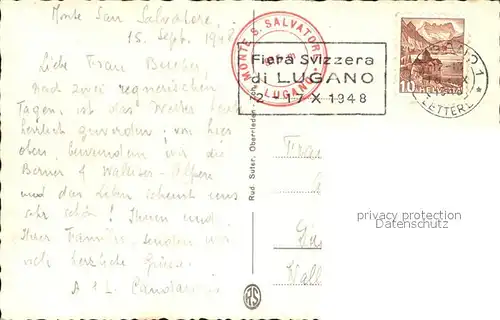 Monte San Salvatore,
15. Sept. 1948
Liebe Frau
Nach zwei regnerischen
Tagen, ist das Wetter heute
herrlich geworden; von hier
oben, bewundern wir die
Berner & Walliser-Alpen
und das Leben scheint uns
sehr schön! Ihnen und
Ihrer Familie, senden wir
recht herzliche Grüsse.
A & L.
MONTE S. SALVATORE
LUGANO
Fiera Svizzera
di LUGANO
2 - 17 X 1948
LUGANO 1
LETTERE
10 HELVETIA
Rud. Suter, Oberrieden
RS
privacy protection
Datenschutz